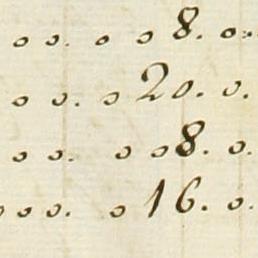 oo. o o 8. o..
o o. o 20. o.
o o. o o 8. o.
o o o. o 16. o.